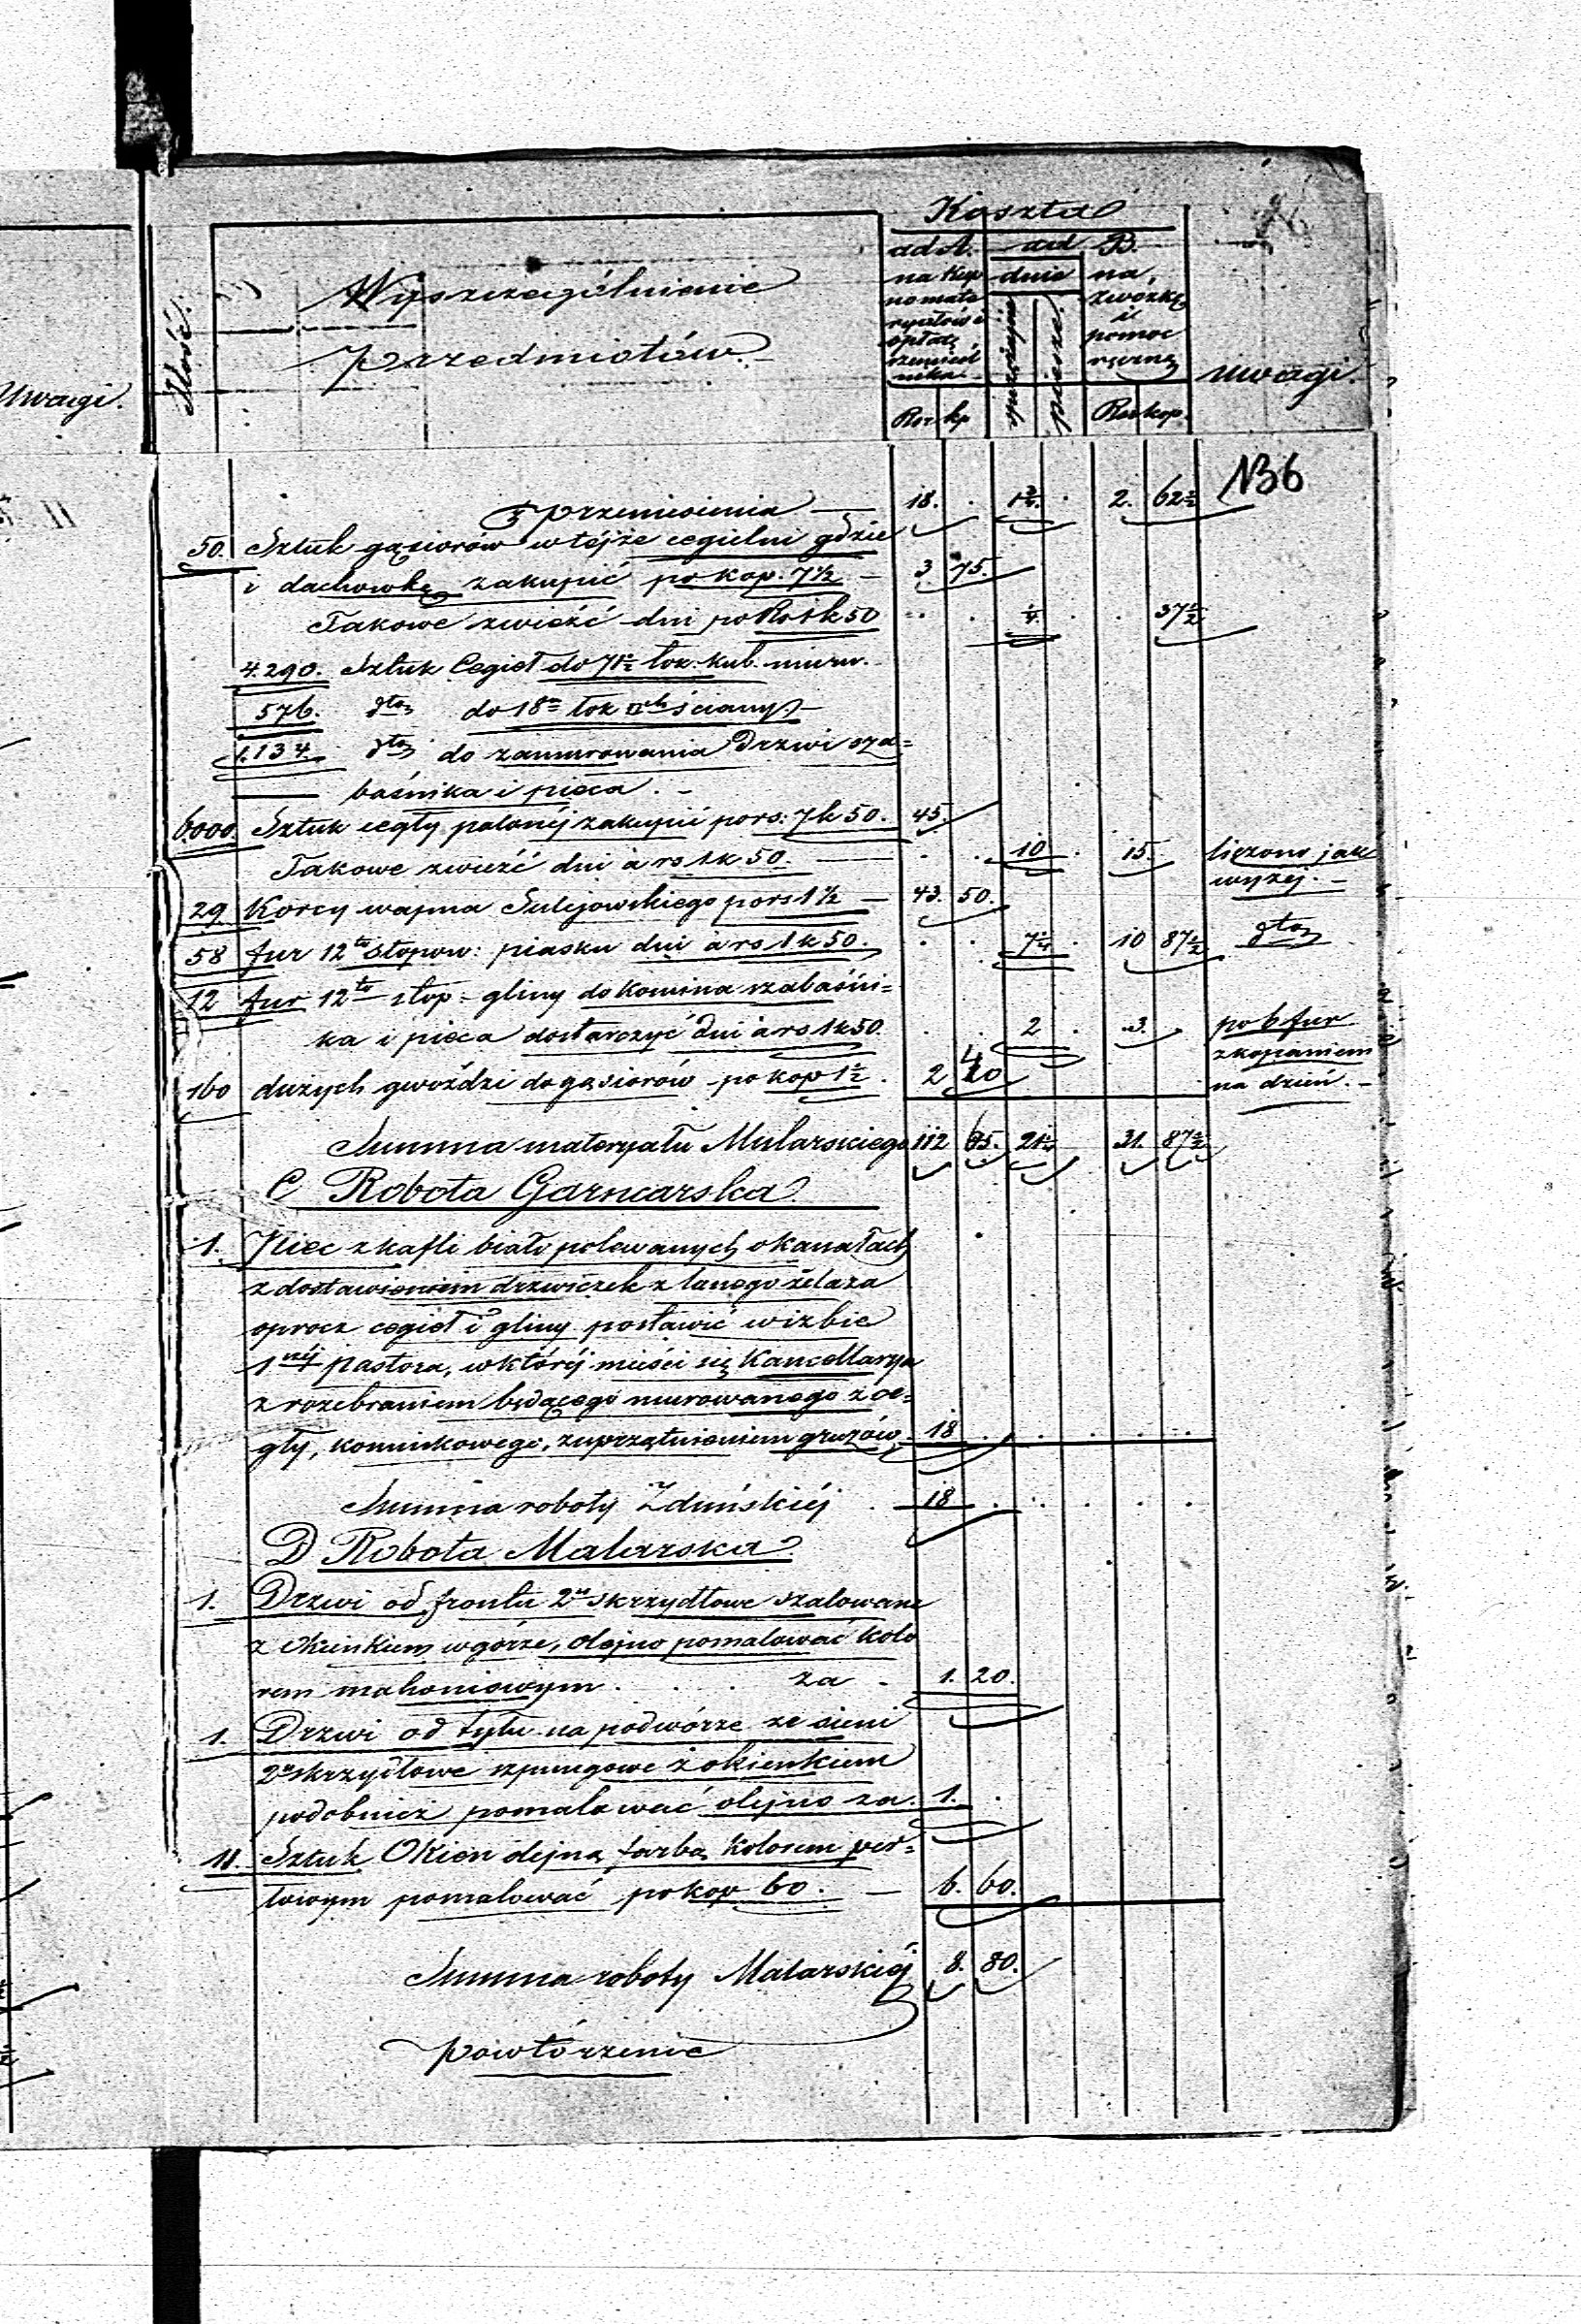 Koszta
ad A. ad B.
na kup dnie na
no mate zwózkę
ryałów i i
opłatę pomoc
rzemieśl ręczną
nika
Ilość.
Wyszczególnienie
Przedmiotów.
piesze.
uwagi.
Uwagi.
Rsr kp Rsr kop.
NB6
z przeniesienia — 18. . 1 3/4. . 2. 62 1/2
50. Sztuk gąsiorów w téjże cegielni gdzie
i dachowkę zakupić po kop. 7 1/2 — 3. 75.
Takowe zwieźć dni po Rs 1 k 50 . . 1/4. . . 37 1/2
4.290. Sztuk Cegieł do 71 1/2 łok. kub. muru.
576. dto do 18 łok ścian
1.134. dto do zamurowania Drzwi sza=
baśnika i pieca. -
6.000. Sztuk cegły palonéj zakupić po rs: 7 k 50. 45.
Takowe zwieźć dni à rs 1 k 50. — . . 10 . 15. liczono jak
wyżej. -
29 Korcy wapna Sulejowskiego po rs 1 1/2 — 43. 50.
58 fur 12to stopow: piasku dni à rs 1 k 50. . . 7 1/4 . 10 87 1/2 dto
12 fur 12to stop - gliny do komina szabaśni=
ka i pieca dostarczyć dni à rs 1 k 50. . . 2 . 3. . po 6 fur
z kopaniem
160 dużych gwoździ do gąsiorów po kop 1 1/2. 2 40 na dzień. -
Summa materyału Mularskiego 112 65. 21 1/4 31. 87 1/2
C Robota Garncarska
1. Piec z kafli biało polewanych o kanałach
z dostawieniem drzwiczek z lanego żelaza
oprocz cegieł i gliny postawić w izbie
1néj pastora, w któréj mieści się Kancellarya
z rozebraniem będącego murowanego z ce=
gły, kominkowego, z uprzątnieniem gruzów. 18 . . . . .
Summa roboty Zduńskiéj . 18 . . . . .
D Robota Malarska
1. Drzwi od frontu 2u skrzydłowe szalowane
z okienkiem w górze, olejno pomalować kolo
rem mahoniowym . . . za - 1. 20.
1. Drzwi od tyłu na podwórze ze sieni
2u skrzydłowe szpungowe z okienkiem
podobnież pomalować olejno za. 1. .
11. Sztuk Okien olejną farbą kolorem per=
łowym pomalować po kop 60. — 6. 60.
Summa roboty Malarskiéj 8. 80.
powtórzenie